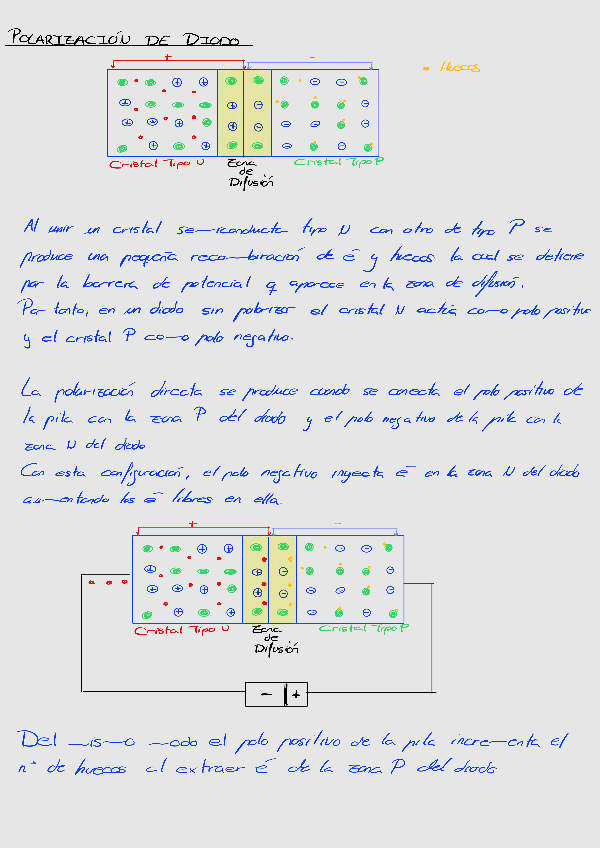 POLARIZACIÓN DE DIODO
+ -
• Huecos
Cristal Tipo N Zona de Difusión Cristal Tipo P
Al unir un cristal semiconductor tipo N con otro de tipo P se
produce una pequeña recombinación de e- y huecos la cual se detiene
por la barrera de potencial q aparece en la zona de difusión.
Por tanto, en un diodo sin polarizar el cristal N actúa como polo positivo
y el cristal P como polo negativo.
La polarización directa se produce cuando se conecta el polo positivo de
la pila con la zona P del diodo y el polo negativo de la pila con la
zona N del diodo.
Con esta configuración, el polo negativo inyecta e- en la zona N del diodo
aumentando los e- libres en ella.
+ -
Cristal Tipo N Zona de Difusión Cristal Tipo P
- +
Del mismo modo el polo positivo de la pila incrementa el
nº de huecos al extraer e- de la zona P del diodo